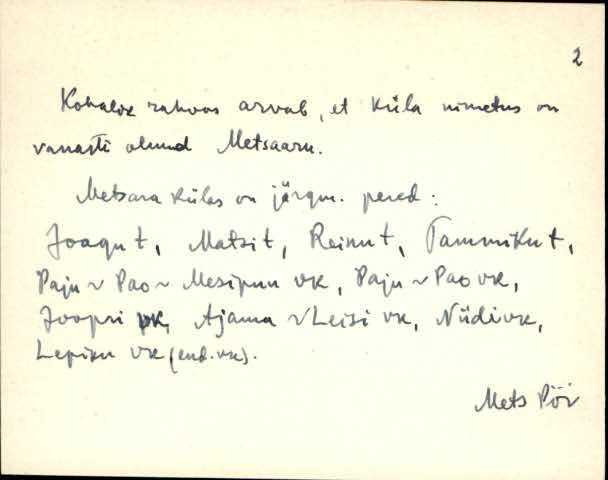 2
Kohalik rahvas arvab, et küla nimetus on
vanasti olnud Metsaaru.
Metsara külas on järgm. pered:
Joagu t, Matsi t, Reinu t, Tammiku t,
Paju ~ Pao ~ Mesipuu vk, Paju ~ Pao vk,
Joopri pk, Ajama ~ Leisi vk, Nüdi vk,
Lepiku vk (end. vk).
Mets Pöi